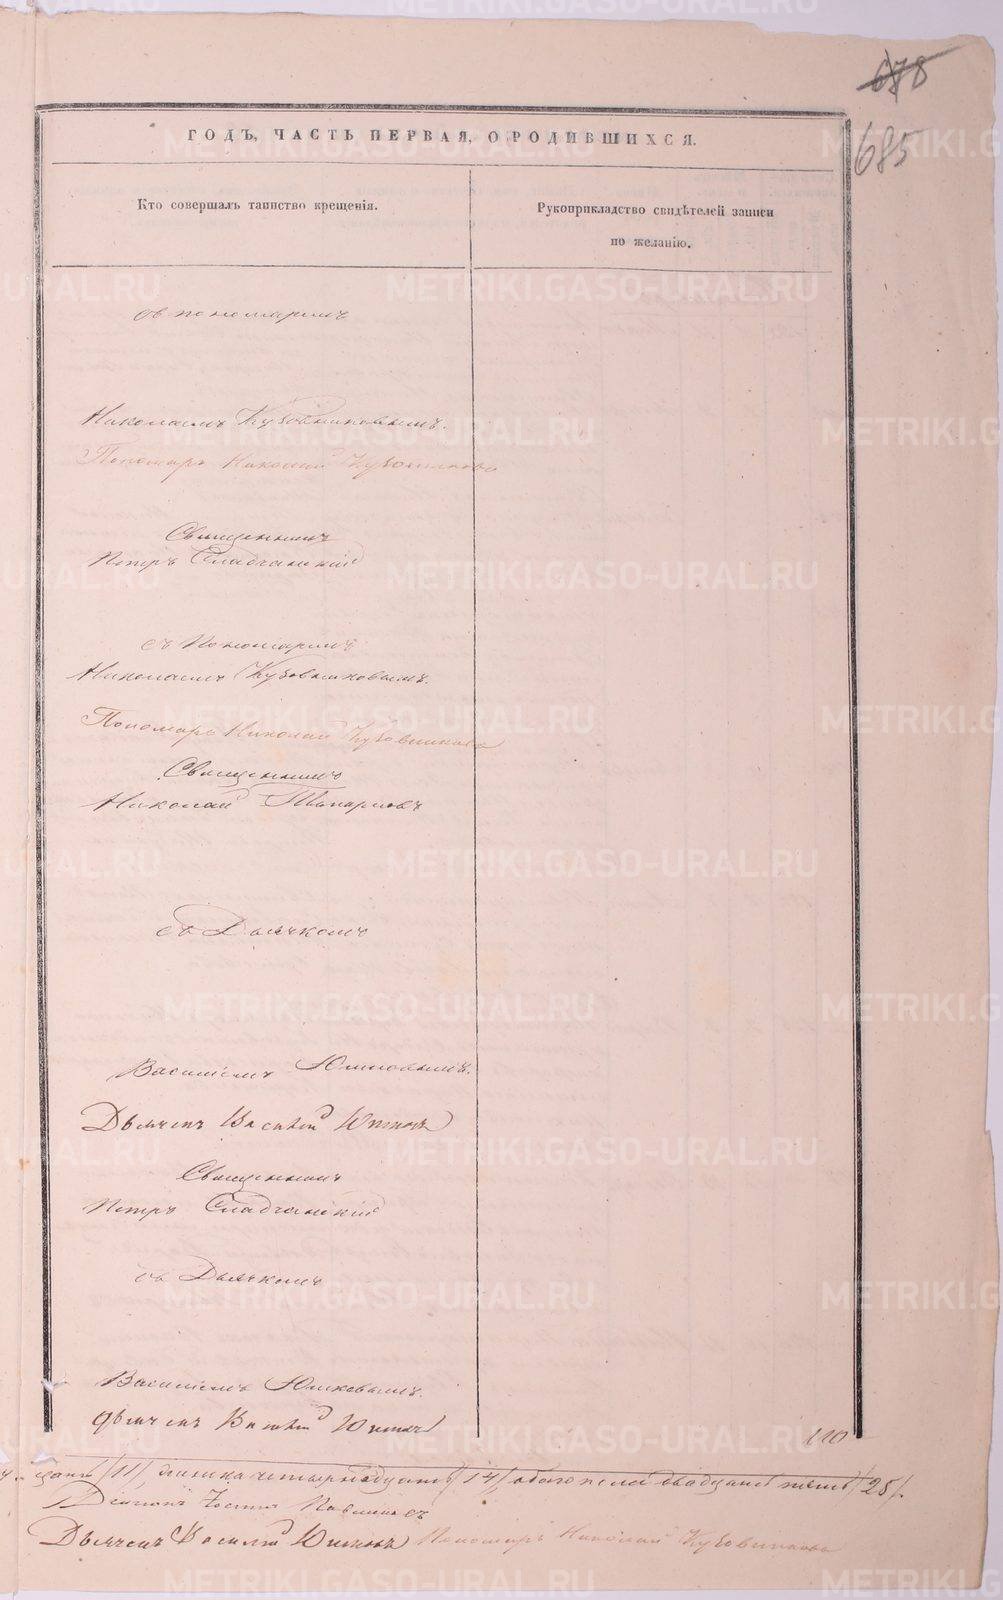 678
685
ГОДЪ, ЧАСТЬ ПЕРВАЯ, О РОДИВШИХСЯ.
Кто совершалъ таинство крещенія.
Рукоприкладство свидѣтелей записи
по желанію.
съ пономаремъ
Николаемъ Кузовниковымъ.
Пономарь Николай Кузовниковъ
Священникъ
Петръ
съ Пономаремъ
Николаемъ Кузовниковымъ.
Пономарь Николай Кузовниковъ
Священникъ
Николай Топорковъ
съ Дьячкомъ
Василіемъ
Дьячекъ Василій
Священникъ
Петръ
съ Дьячкомъ
Василіемъ
Дьячекъ Василій
110
/11/, женска четырнадцать /14/, обоего пола двадцать пять /25/.
Діаконъ
Дьячекъ Василій Пономарь Николай Кузовниковъ
METRIKI.GASO-URAL.RU